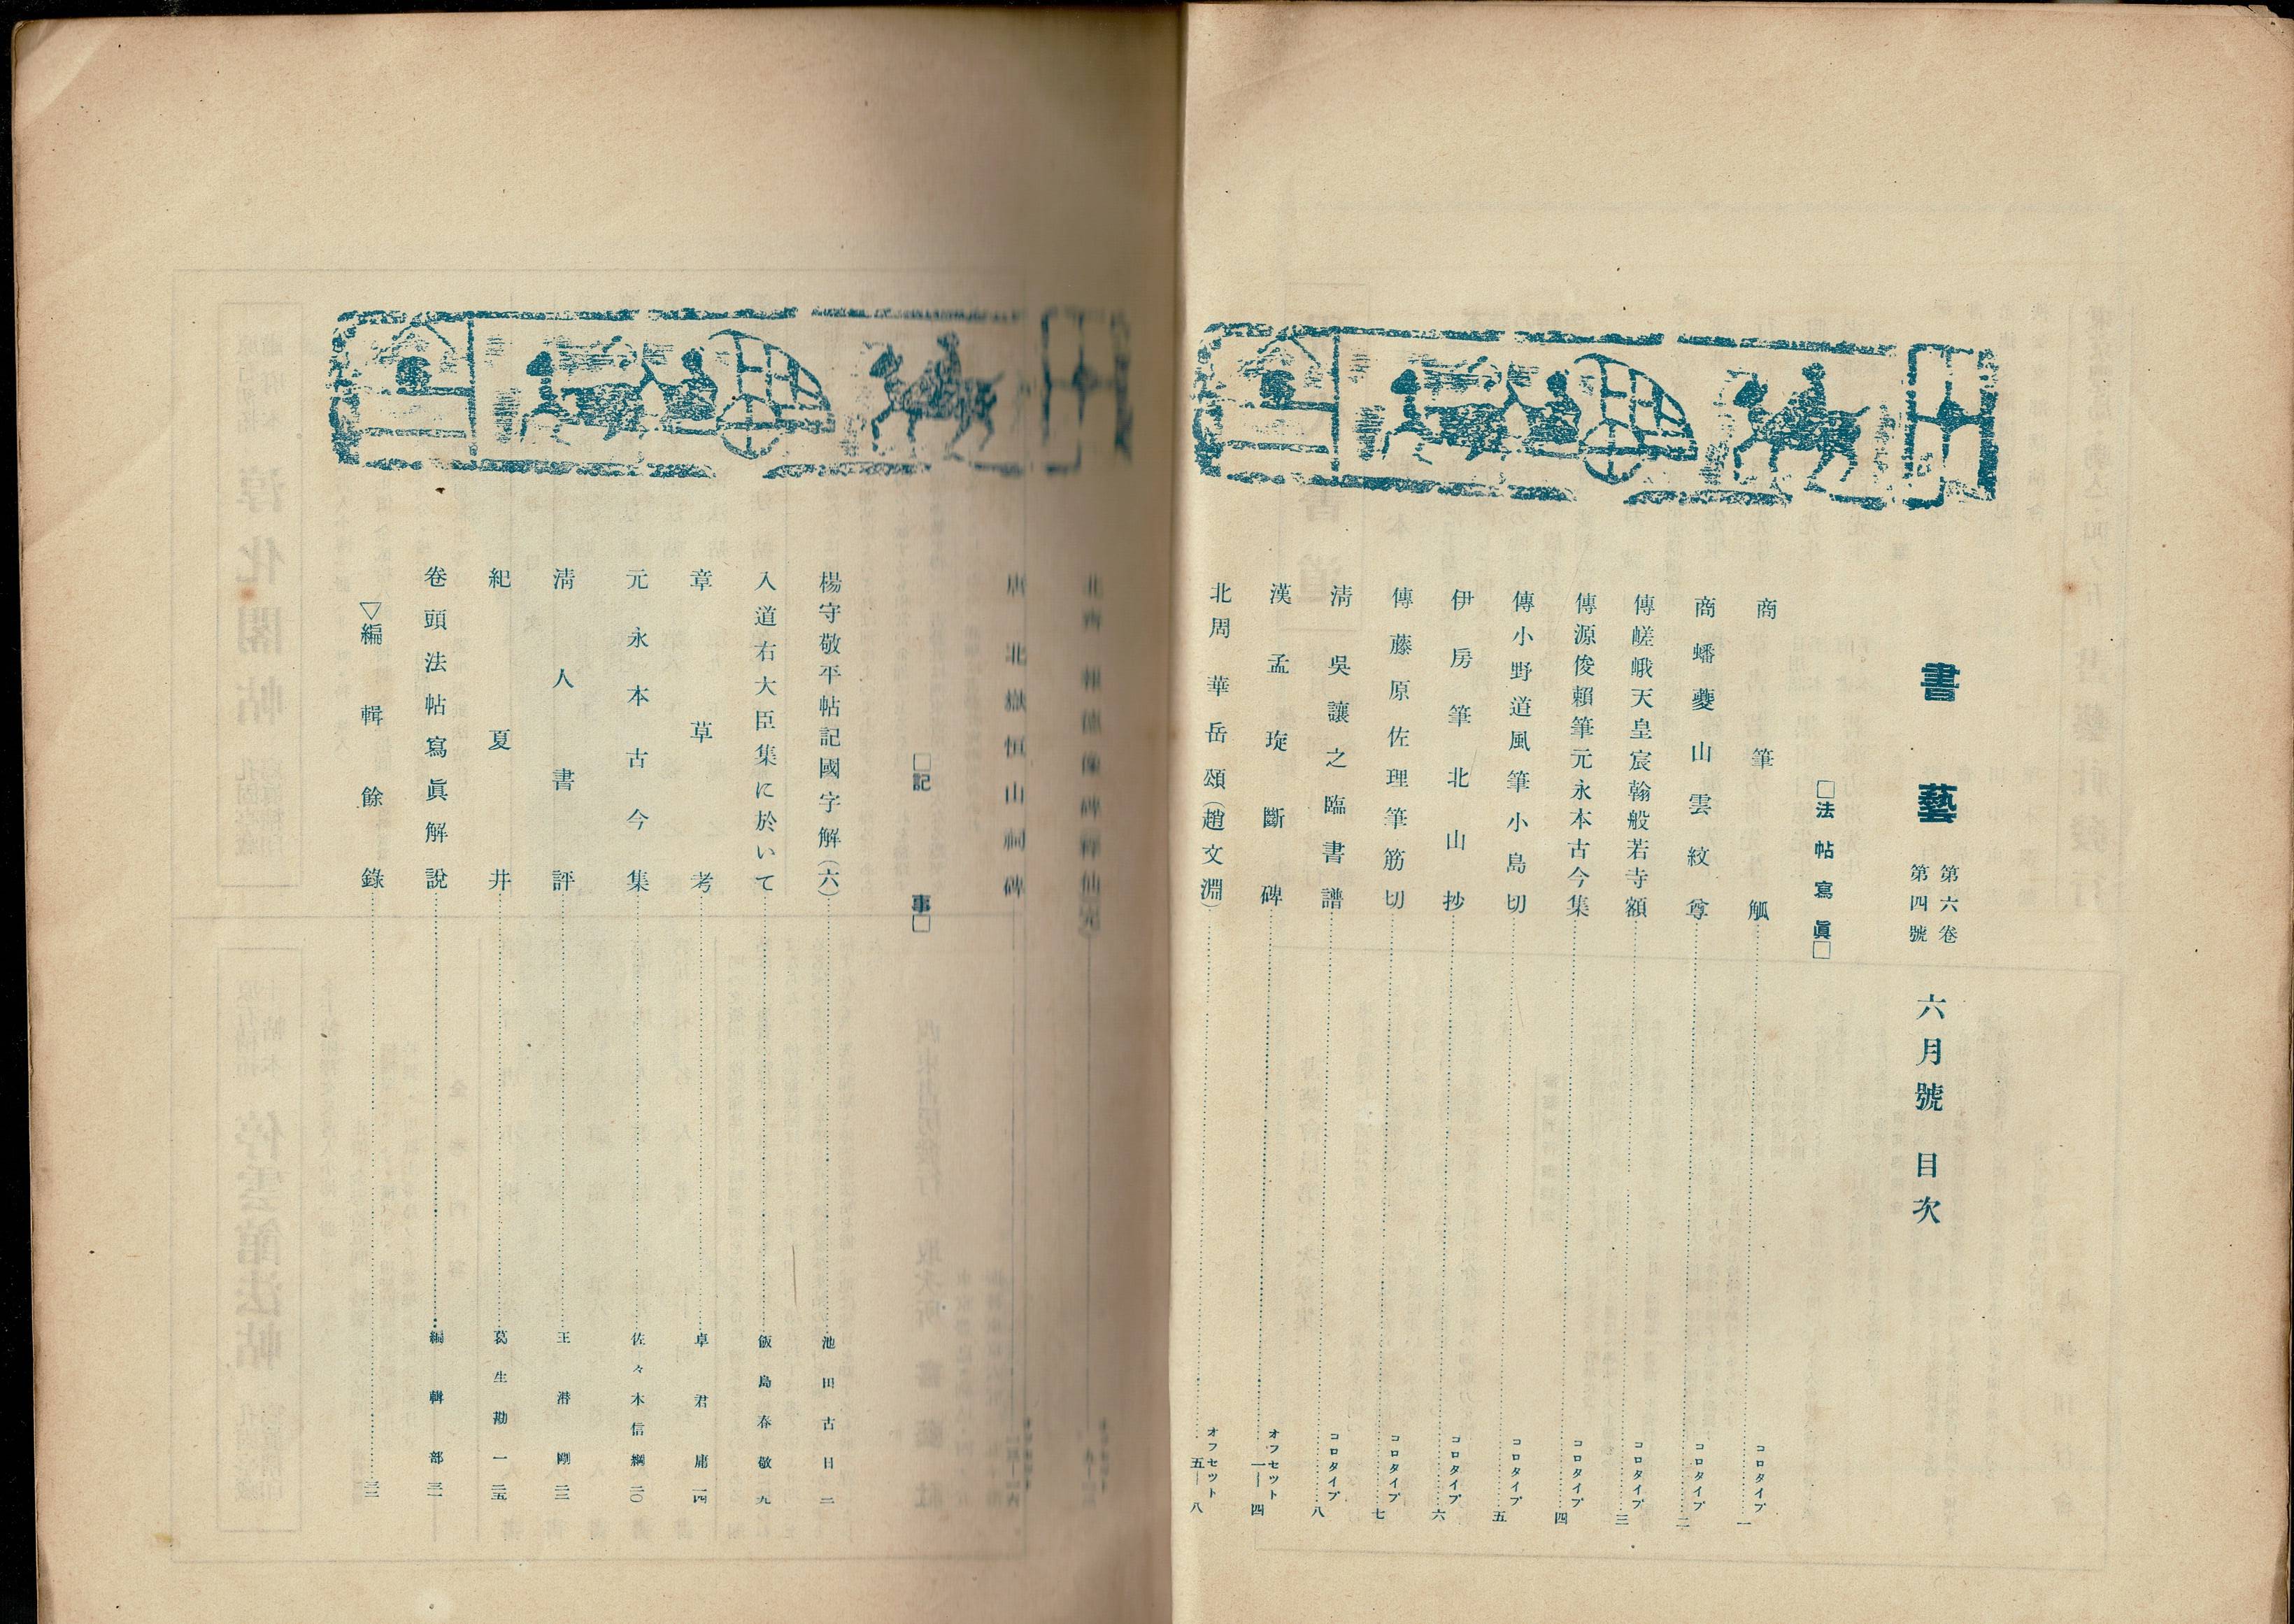 書藝 第六卷 第四號 六月號 目次
□法帖寫眞□
商筆觚 コロタイプ 一
商蟠夔山雲紋尊 コロタイプ 二
傳嵯峨天皇宸翰般若寺額 コロタイプ 三
傳源俊賴筆元永本古今集 コロタイプ 四
傳小野道風筆小島切 コロタイプ 五
伊房筆北山抄 コロタイプ 六
傳藤原佐理筆筋切 コロタイプ 七
淸吳讓之臨書譜 コロタイプ 八
漢孟琁斷碑 オフセツト 一―四
北周華岳頌(趙文淵) オフセツト 五―八
唐北嶽恒山祠碑
□記事□
楊守敬平帖記國字解(六) 池田古日 二
入道右大臣集に於いて 飯島春敬 九
章草考 卓君庸 一四
元永本古今集 佐々木信綱 二〇
淸人書評 王潛剛 二三
紀夏井 葛生勘一 二五
卷頭法帖寫眞解說 編輯部 三一
▽編輯餘錄 三三